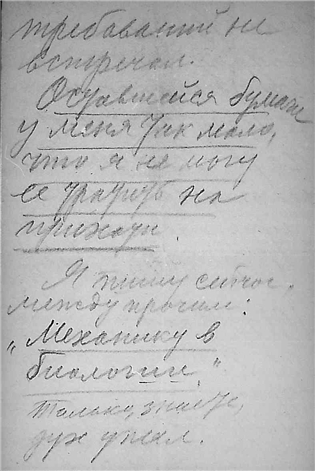 требований не
встречал.
Оставшейся бумаги
у меня так мало,
что я не могу
ее тратить на
прихоти.
Я пишу сейчас,
между прочим:
„Механику в
биологии".
Только, знаете,
дух упал.